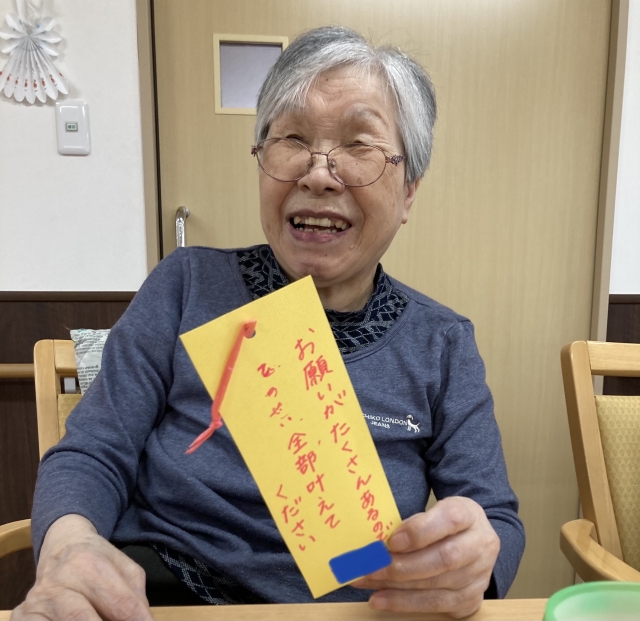 お願いがたくさんあるので
全部、叶えて
ください
LONDON
JEANS